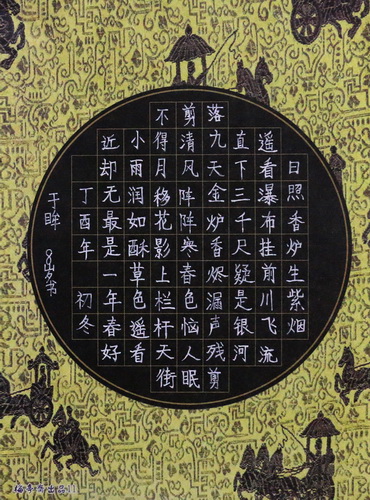 日照香炉生紫烟
遥看瀑布挂前川飞流
直下三千尺疑是银河
落九天金炉香烬漏声残剪
剪清风阵阵寒春色恼人眠
不得月移花影上栏杆天街
小雨润如酥草色遥看
近却无最是一年春好
丁酉年 初冬
书
出品